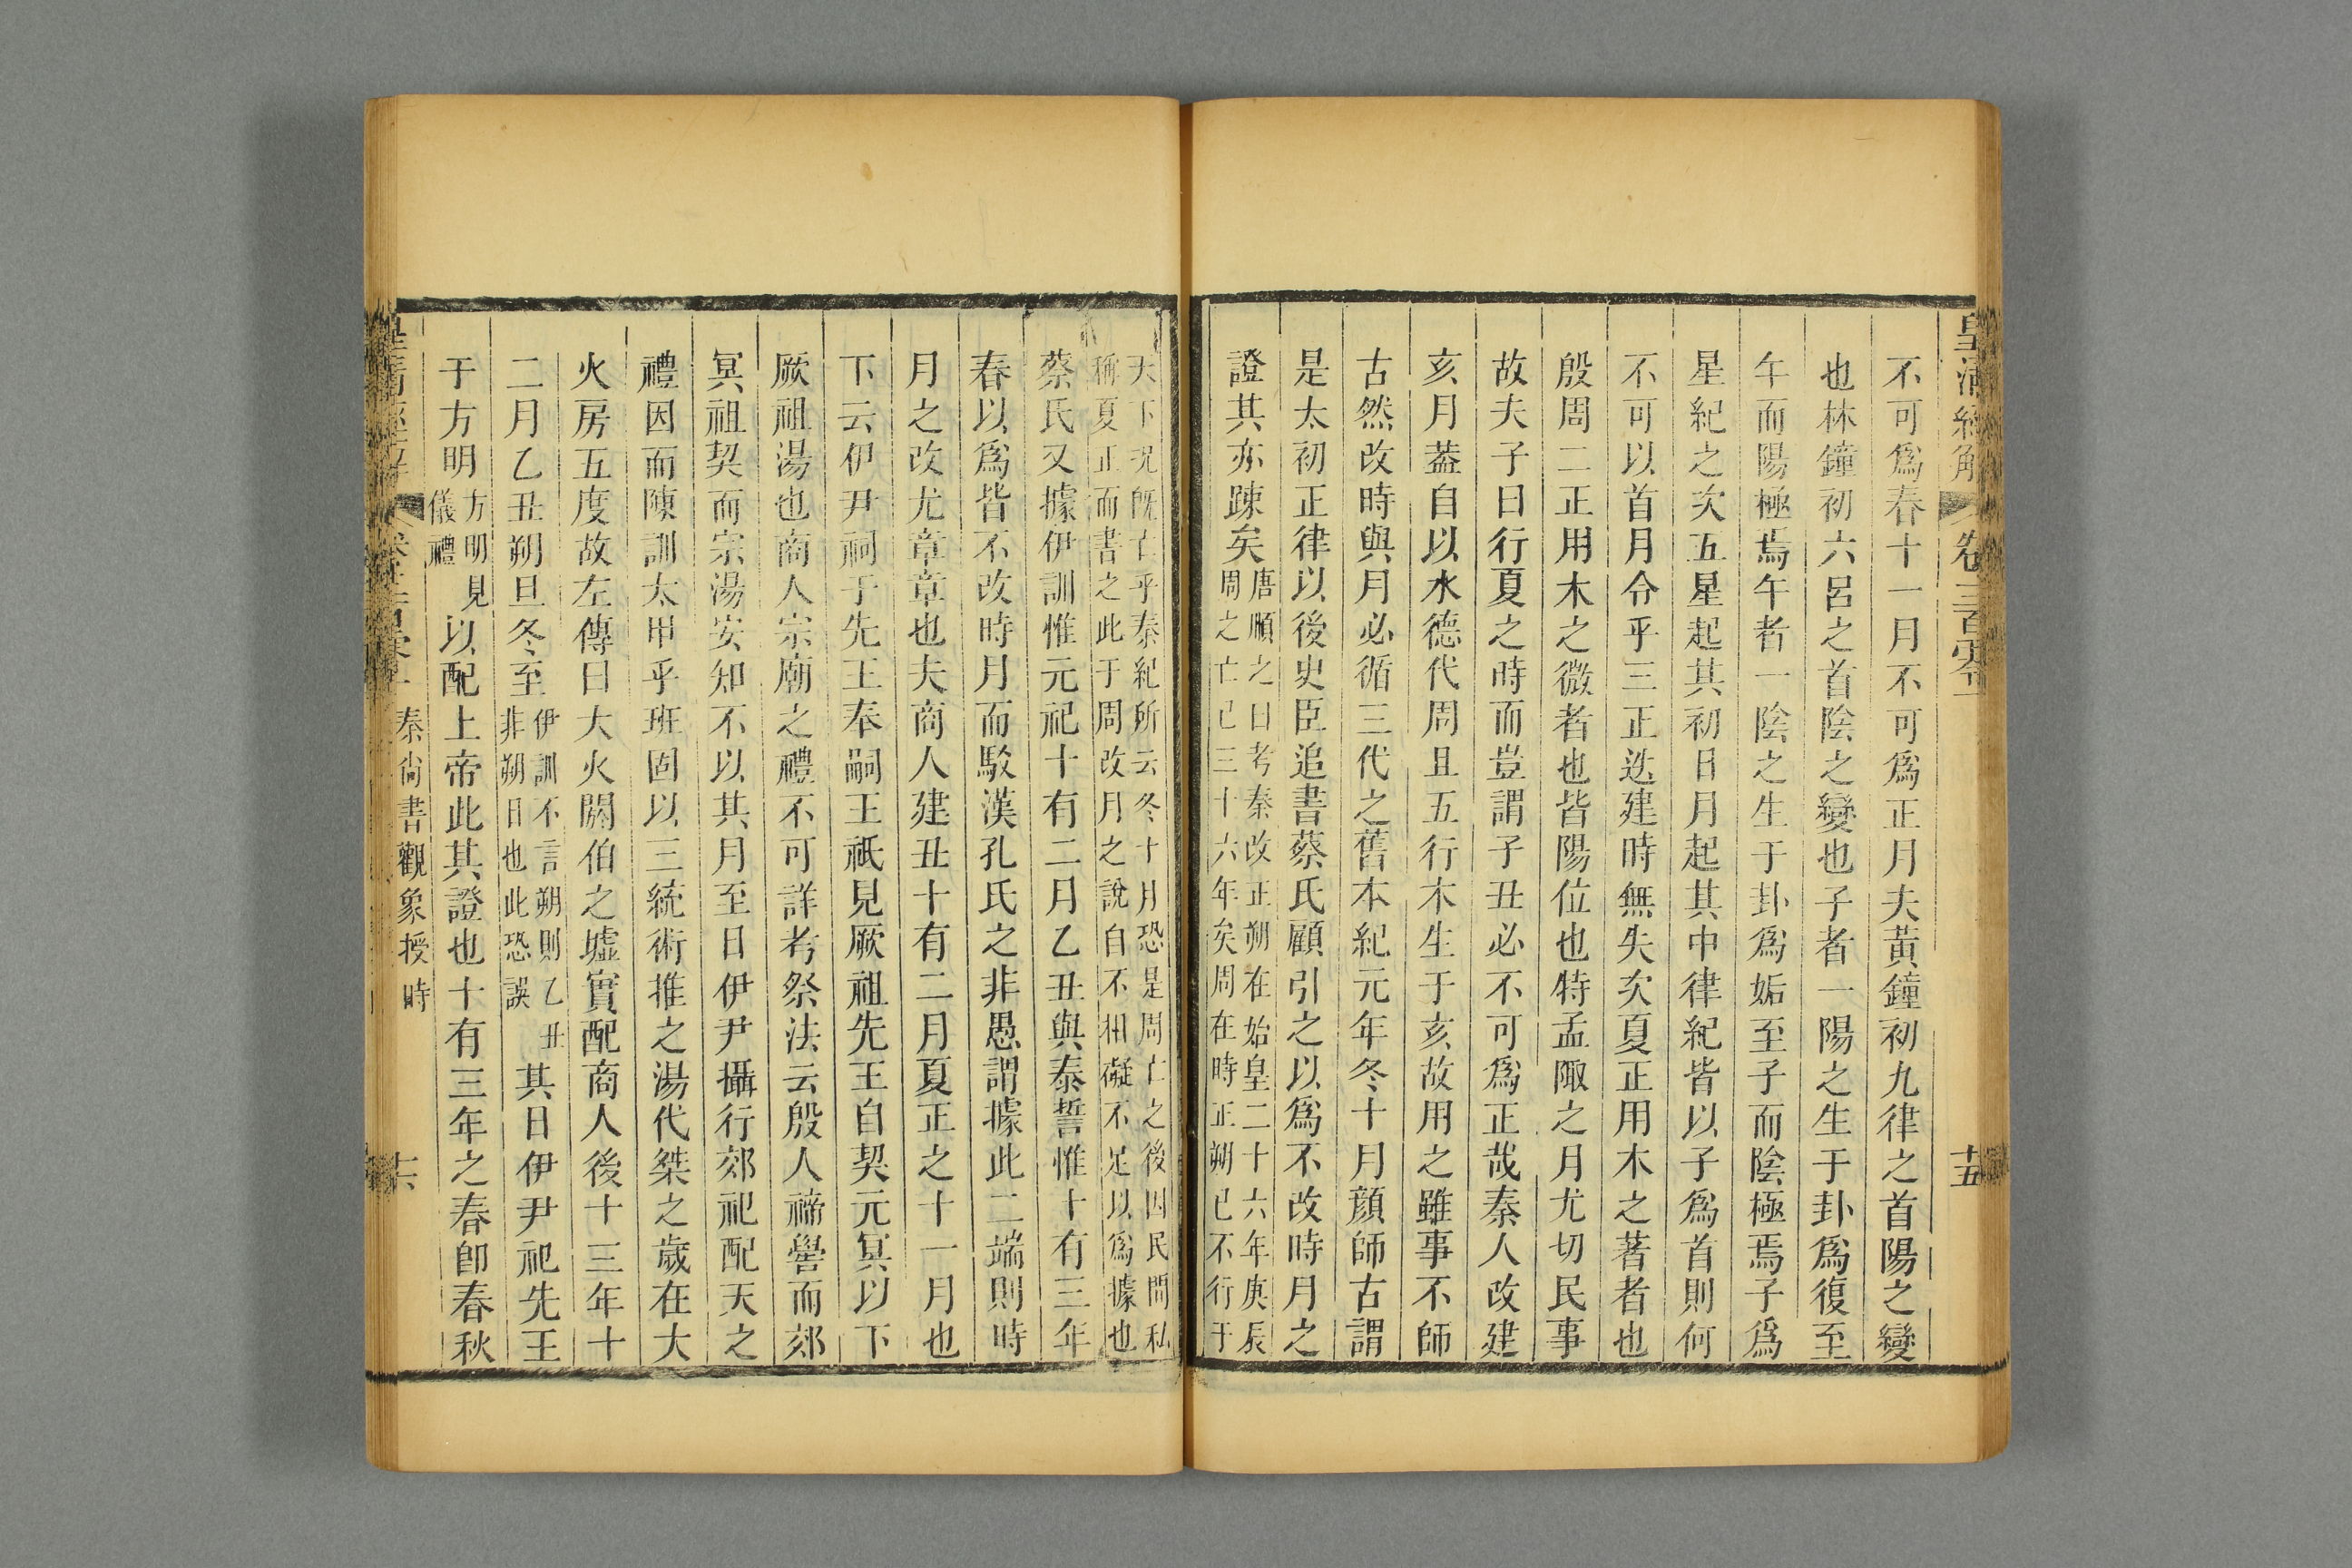 皇清經解 卷三百零一 十五
不可爲春十一月不可爲正月夫黃鐘初九律之首陽之變
也林鐘初六呂之首陰之變也子者一陽之生于卦爲復至
午而陽極焉午者一陰之生于卦爲姤至子而陰極焉子爲
星紀之次五星起其初日月起其中律紀皆以子爲首則何
不可以首月令乎三正迭建時無失次夏正用木之著者也
殷周二正用木之微者也皆陽位也特孟陬之月尤切民事
故夫子曰行夏之時而豈謂子丑必不可爲正哉秦人改建
亥月蓋自以水德代周且五行木生于亥故用之雖事不師
古然改時與月必循三代之舊本紀元年冬十月顔師古謂
是太初正律以後史臣追書蔡氏顧引之以爲不改時月之
證其亦踈矣
唐順之曰考秦改正朔在始皇二十六年庚辰
周之亡已三十六年矣周在時正朔已不行于
天下况旣亡乎秦紀所云冬十月恐是周亡之後因民間私
稱夏正而書之此于周改月之說自不相礙不足以爲據也
蔡氏又據伊訓惟元祀十有二月乙丑與泰誓惟十有三年
春以爲皆不改時月而駁漢孔氏之非愚謂據此二端則時
月之改尤章章也夫商人建丑十有二月夏正之十一月也
下云伊尹祠于先王奉嗣王祇見厥祖先王自契元冥以下
厥祖湯也商人宗廟之禮不可詳考祭法云殷人禘嚳而郊
冥祖契而宗湯安知不以其月至日伊尹攝行郊祀配天之
禮因而陳訓太甲乎班固以三統術推之湯代桀之歲在大
火房五度故左傳曰大火閼伯之墟實配商人後十三年十
二月乙丑朔旦冬至
伊訓不言朔則乙丑
非朔日也此恐誤
其日伊尹祀先王
于方明
方明見
儀禮
以配上帝此其證也十有三年之春卽春秋
皇清經解 卷三百零一 秦尙書觀象授時 十六